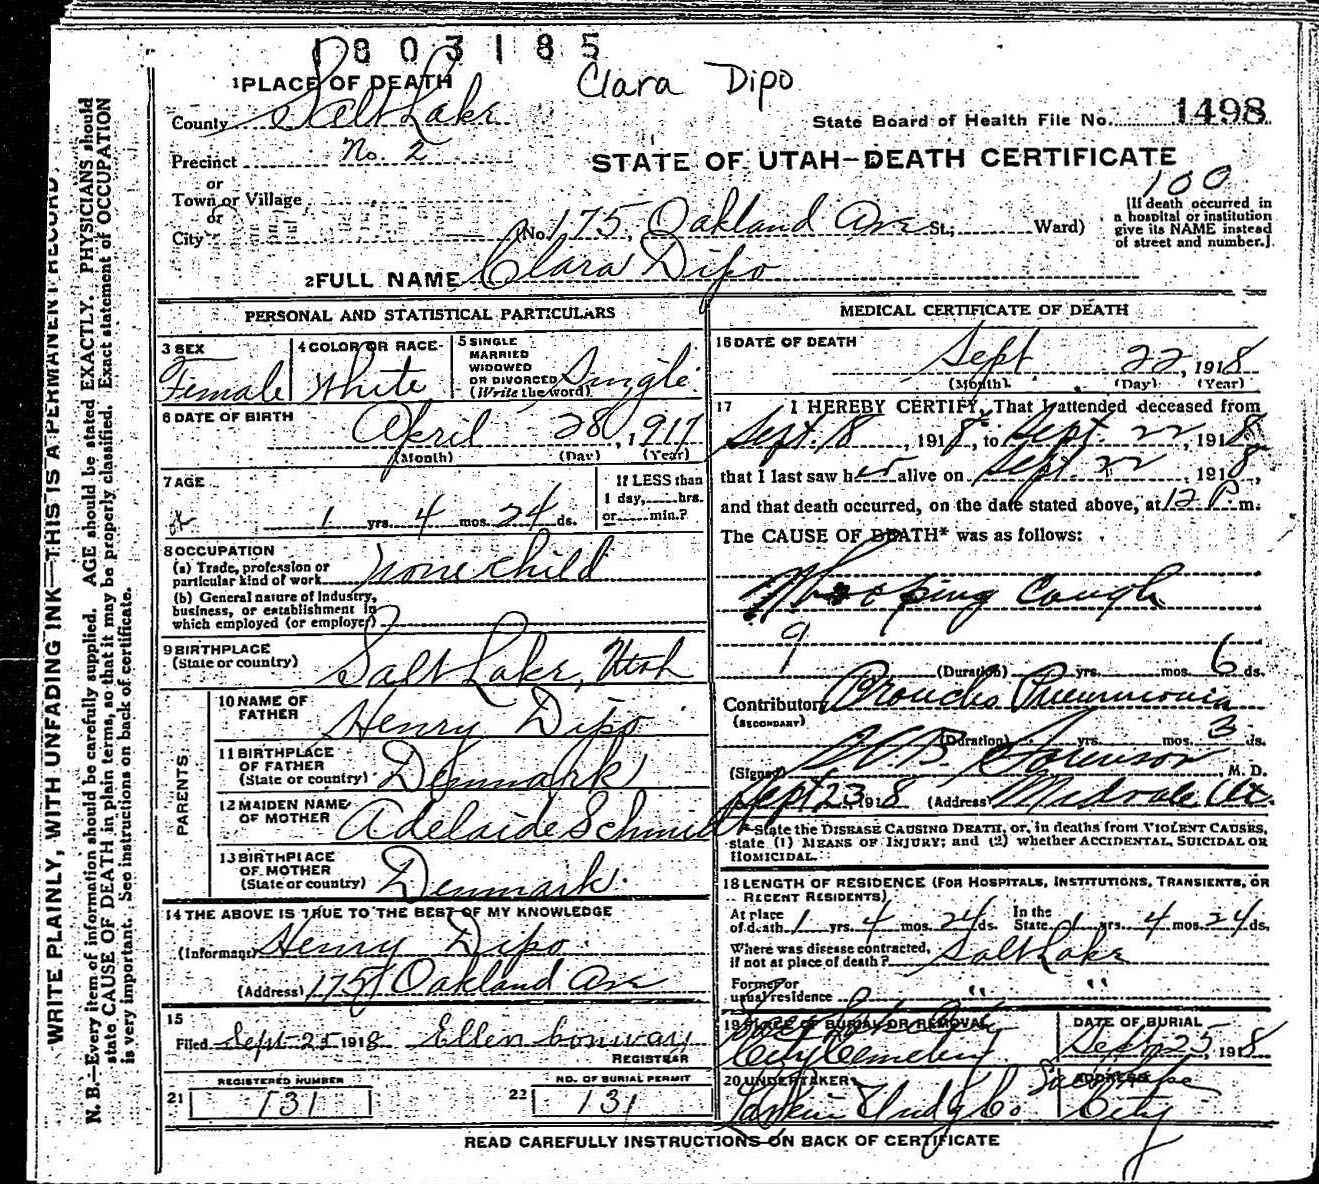 1803185
Clara Dipo
1 PLACE OF DEATH
County Salt Lake
State Board of Health File No. 1498
Precinct No. 2
STATE OF UTAH—DEATH CERTIFICATE
or
Town or Village
or
City (No. 175, Oakland Ave St.; Ward)
100
[If death occurred in a hospital or institution give its NAME instead of street and number.]
2 FULL NAME Clara Dipo
PERSONAL AND STATISTICAL PARTICULARS
3 SEX Female
4 COLOR OR RACE White
5 SINGLE MARRIED WIDOWED OR DIVORCED (Write the word) Single
6 DATE OF BIRTH April 28, 1917
(Month) (Day) (Year)
7 AGE
1 yrs. 4 mos. 24 ds.
If LESS than 1 day, hrs. or min.?
8 OCCUPATION
(a) Trade, profession or particular kind of work none child
(b) General nature of industry, business, or establishment in which employed (or employer)
9 BIRTHPLACE
(State or country) Salt Lake, Utah
PARENTS
10 NAME OF FATHER Henry Dipo
11 BIRTHPLACE OF FATHER (State or country) Denmark
12 MAIDEN NAME OF MOTHER Adelaide Schmidt
13 BIRTHPLACE OF MOTHER (State or country) Denmark.
14 THE ABOVE IS TRUE TO THE BEST OF MY KNOWLEDGE
(Informant) Henry Dipo.
(Address) 175 Oakland Ave
15
Filed Sept 25 1918 Ellen Conway
REGISTRAR
21 REGISTERED NUMBER 131
22 NO. OF BURIAL PERMIT 131
MEDICAL CERTIFICATE OF DEATH
16 DATE OF DEATH
Sept 22, 1918
(Month) (Day) (Year)
17 I HEREBY CERTIFY, That I attended deceased from
Sept. 18, 1918, to Sept. 22, 1918,
that I last saw her alive on Sept. 22, 1918,
and that death occurred, on the date stated above, at 12 P. m.
The CAUSE OF DEATH* was as follows:
Whooping Cough
9
(Duration) yrs. mos. 6 ds.
Contributory Broncho Pneumonia
(SECONDARY)
(Duration) yrs. mos. 3 ds.
(Signed) Sorenson, M. D.
Sept 23, 1918 (Address) Midvale Ut.
*State the DISEASE CAUSING DEATH, or, in deaths from VIOLENT CAUSES, state (1) MEANS OF INJURY; and (2) whether ACCIDENTAL, SUICIDAL OR HOMICIDAL.
18 LENGTH OF RESIDENCE (FOR HOSPITALS, INSTITUTIONS, TRANSIENTS, OR RECENT RESIDENTS)
At place of death 1 yrs. 4 mos. 24 ds. In the State 1 yrs. 4 mos. 24 ds.
Where was disease contracted, if not at place of death? Salt Lake
Former or usual residence " "
19 PLACE OF BURIAL OR REMOVAL
City Cemetery
DATE OF BURIAL
Sept 25, 1918
20 UNDERTAKER
Larkin Undg Co.
ADDRESS
Salt Lake City
READ CAREFULLY INSTRUCTIONS ON BACK OF CERTIFICATE
WRITE PLAINLY, WITH UNFADING INK—THIS IS A PERMANENT RECORD.
N. B.—Every item of information should be carefully supplied. AGE should be stated EXACTLY. PHYSICIANS should
state CAUSE OF DEATH in plain terms, so that it may be properly classified. Exact statement of OCCUPATION
is very important. See instructions on back of certificate.